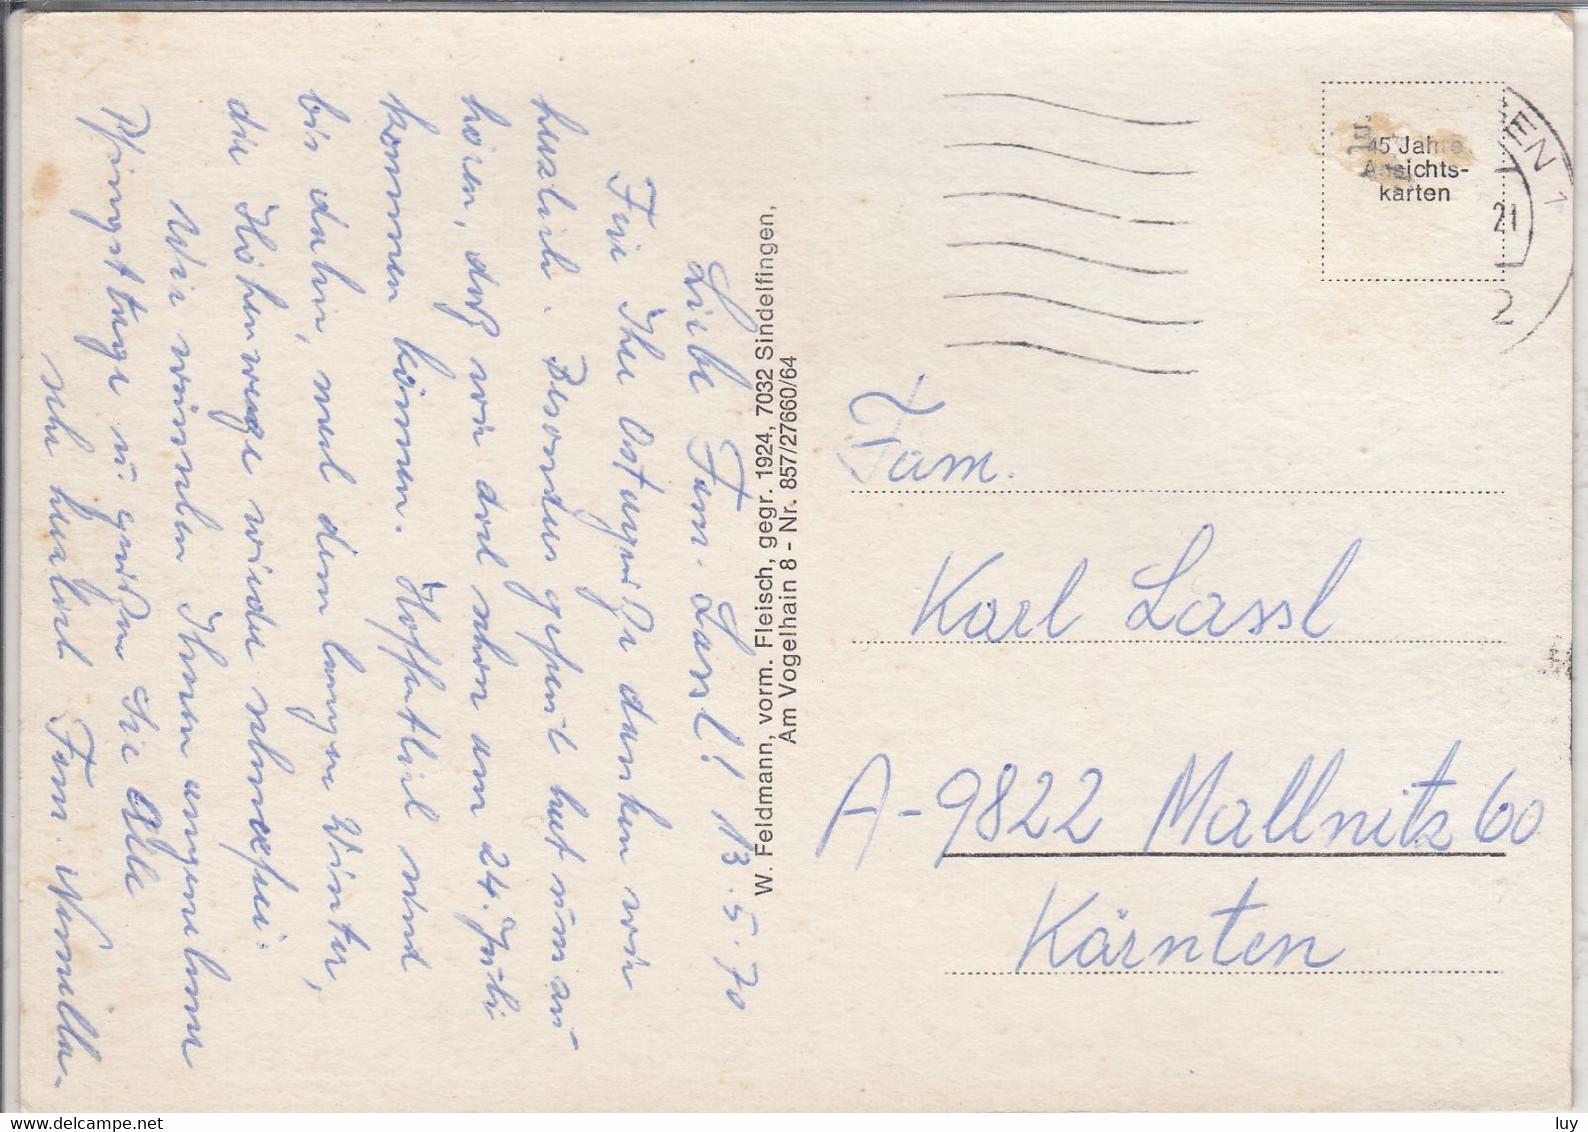 Liebe Fam. Lassl! 13.5.70
Für Ihre Ostergrüße danken wir
herzlich. Besonders gefreut hat uns zu
hören, daß wir doch schon am 24. Juli
kommen können. Hoffentlich sind
bis dahin, nach dem langen Winter,
die Höhenwege wieder schneefrei.
Wir wünschen Ihnen angenehme
Pfingsttage u. grüßen Sie Alle
sehr herzlich Fam.
W. Feldmann, vorm. Fleisch, gegr. 1924, 7032 Sindelfingen,
Am Vogelhain 8 - Nr. 857/27660/64
45 Jahre
Ansichts-
karten
EN 1
21
2
Fam.
Karl Lassl
A-9822 Mallnitz 60
Kärnten
www.delcampe.net
luy